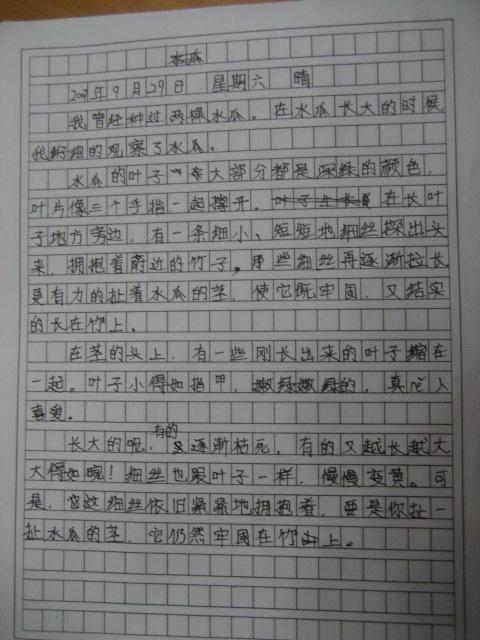 水瓜
2007年9月29日 星期六 晴
我曾经种过两棵水瓜。在水瓜长大的时候,
我仔细的观察了水瓜。
水瓜的叶子大部分都是深绿的颜色,
叶片像三个手指一起撑开。在长叶
子地方旁边,有一条细小、短短地细丝探出头
来,拥抱着蔚近的竹子。那些细丝再逐渐拉长
更有力的扯着水瓜的茎,使它既牢固,又结实
的长在竹上。
在茎的头上,有一些刚长出来的叶子缩在
一起。叶子小得如指甲,嫩绿嫩绿的,真吃人
喜爱。
长大的呢,有的逐渐枯死,有的又越长越大
大得如碗!细丝也跟叶子一样,慢慢变黄。可
是,这细丝依旧紧紧地拥抱着,要是你扯一
扯水瓜的茎,它仍然牢固在竹上。